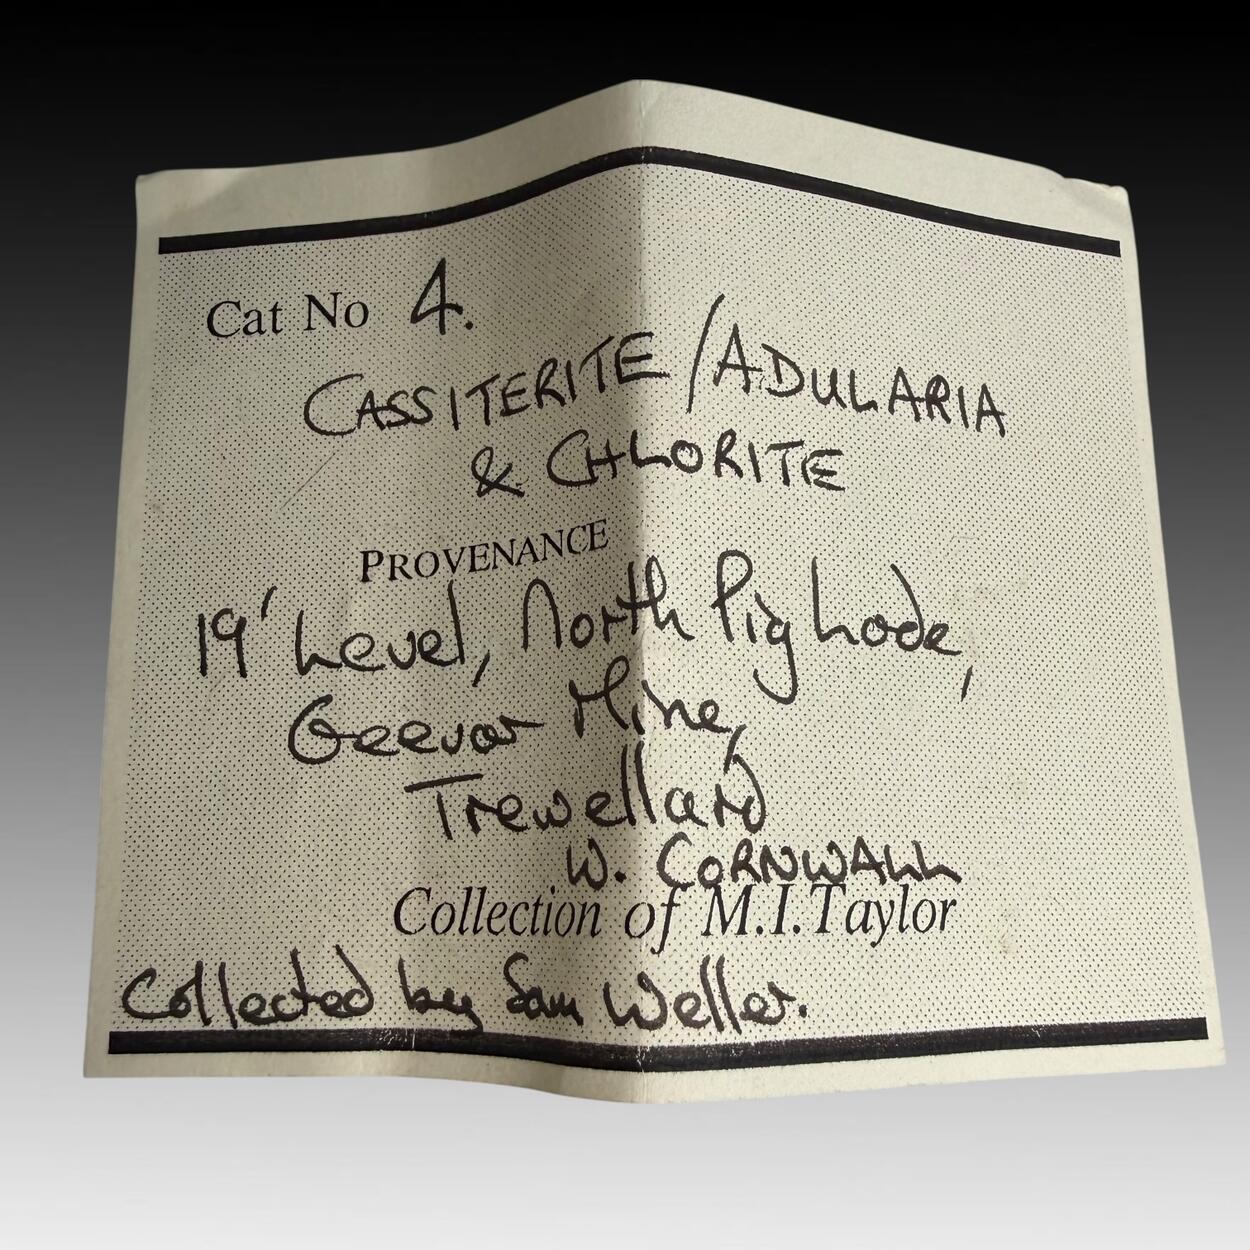 Cat No 4.
CASSITERITE / ADULARIA
& CHLORITE
PROVENANCE
19' Level, North Pig Lode,
Geevor Mine,
Trewellard
W. CORNWALL
Collection of M.I.Taylor
Collected by Sam Weller.